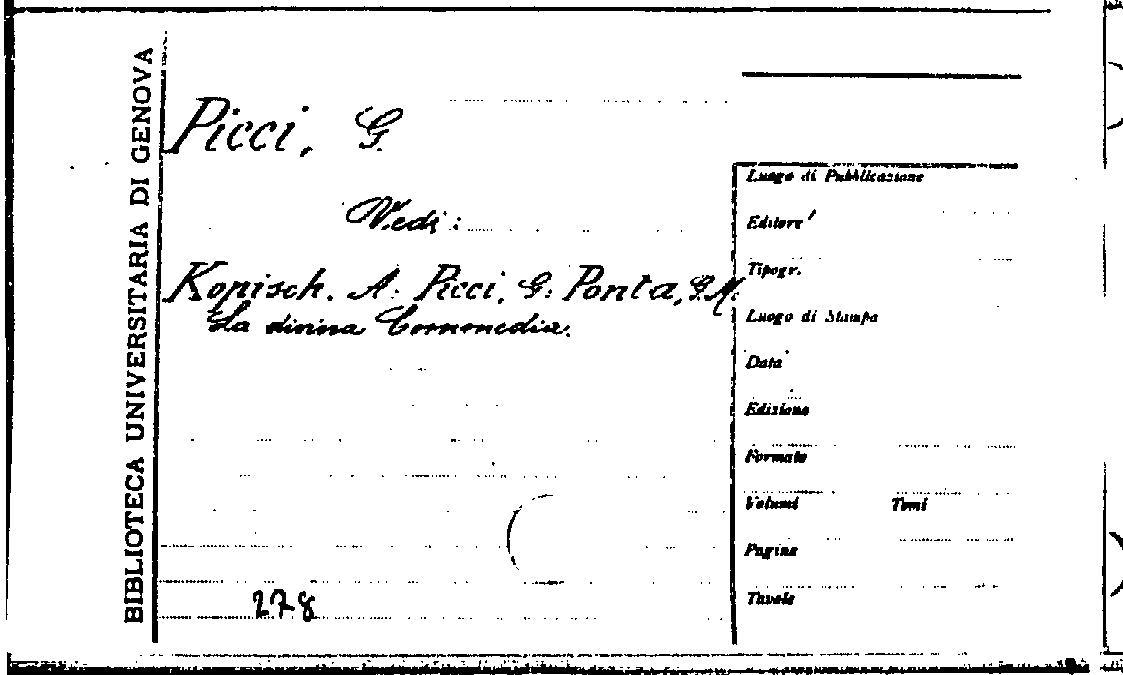 BIBLIOTECA UNIVERSITARIA DI GENOVA
Picci, G.
Vedi:
Kopisch. A. Picci, G. Ponta, G.M.
La divina Commedia.
278
Luogo di Pubblicazione
Editore
Tipogr.
Luogo di Stampa
Data
Edizione
Formato
Volumi Tomi
Pagine
Tavole